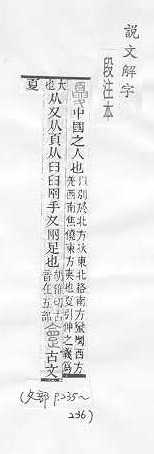 說文解字
段注本
夏
中國之人也
以別於北方狄東北貉南方蠻閩西方
羌西南焦僥東方夷也夏引伸之義爲
大也
从夊从頁从𦥑𦥑兩手夊兩足也
胡雅切古
音在五部
古文
(夊部 P.235~236)